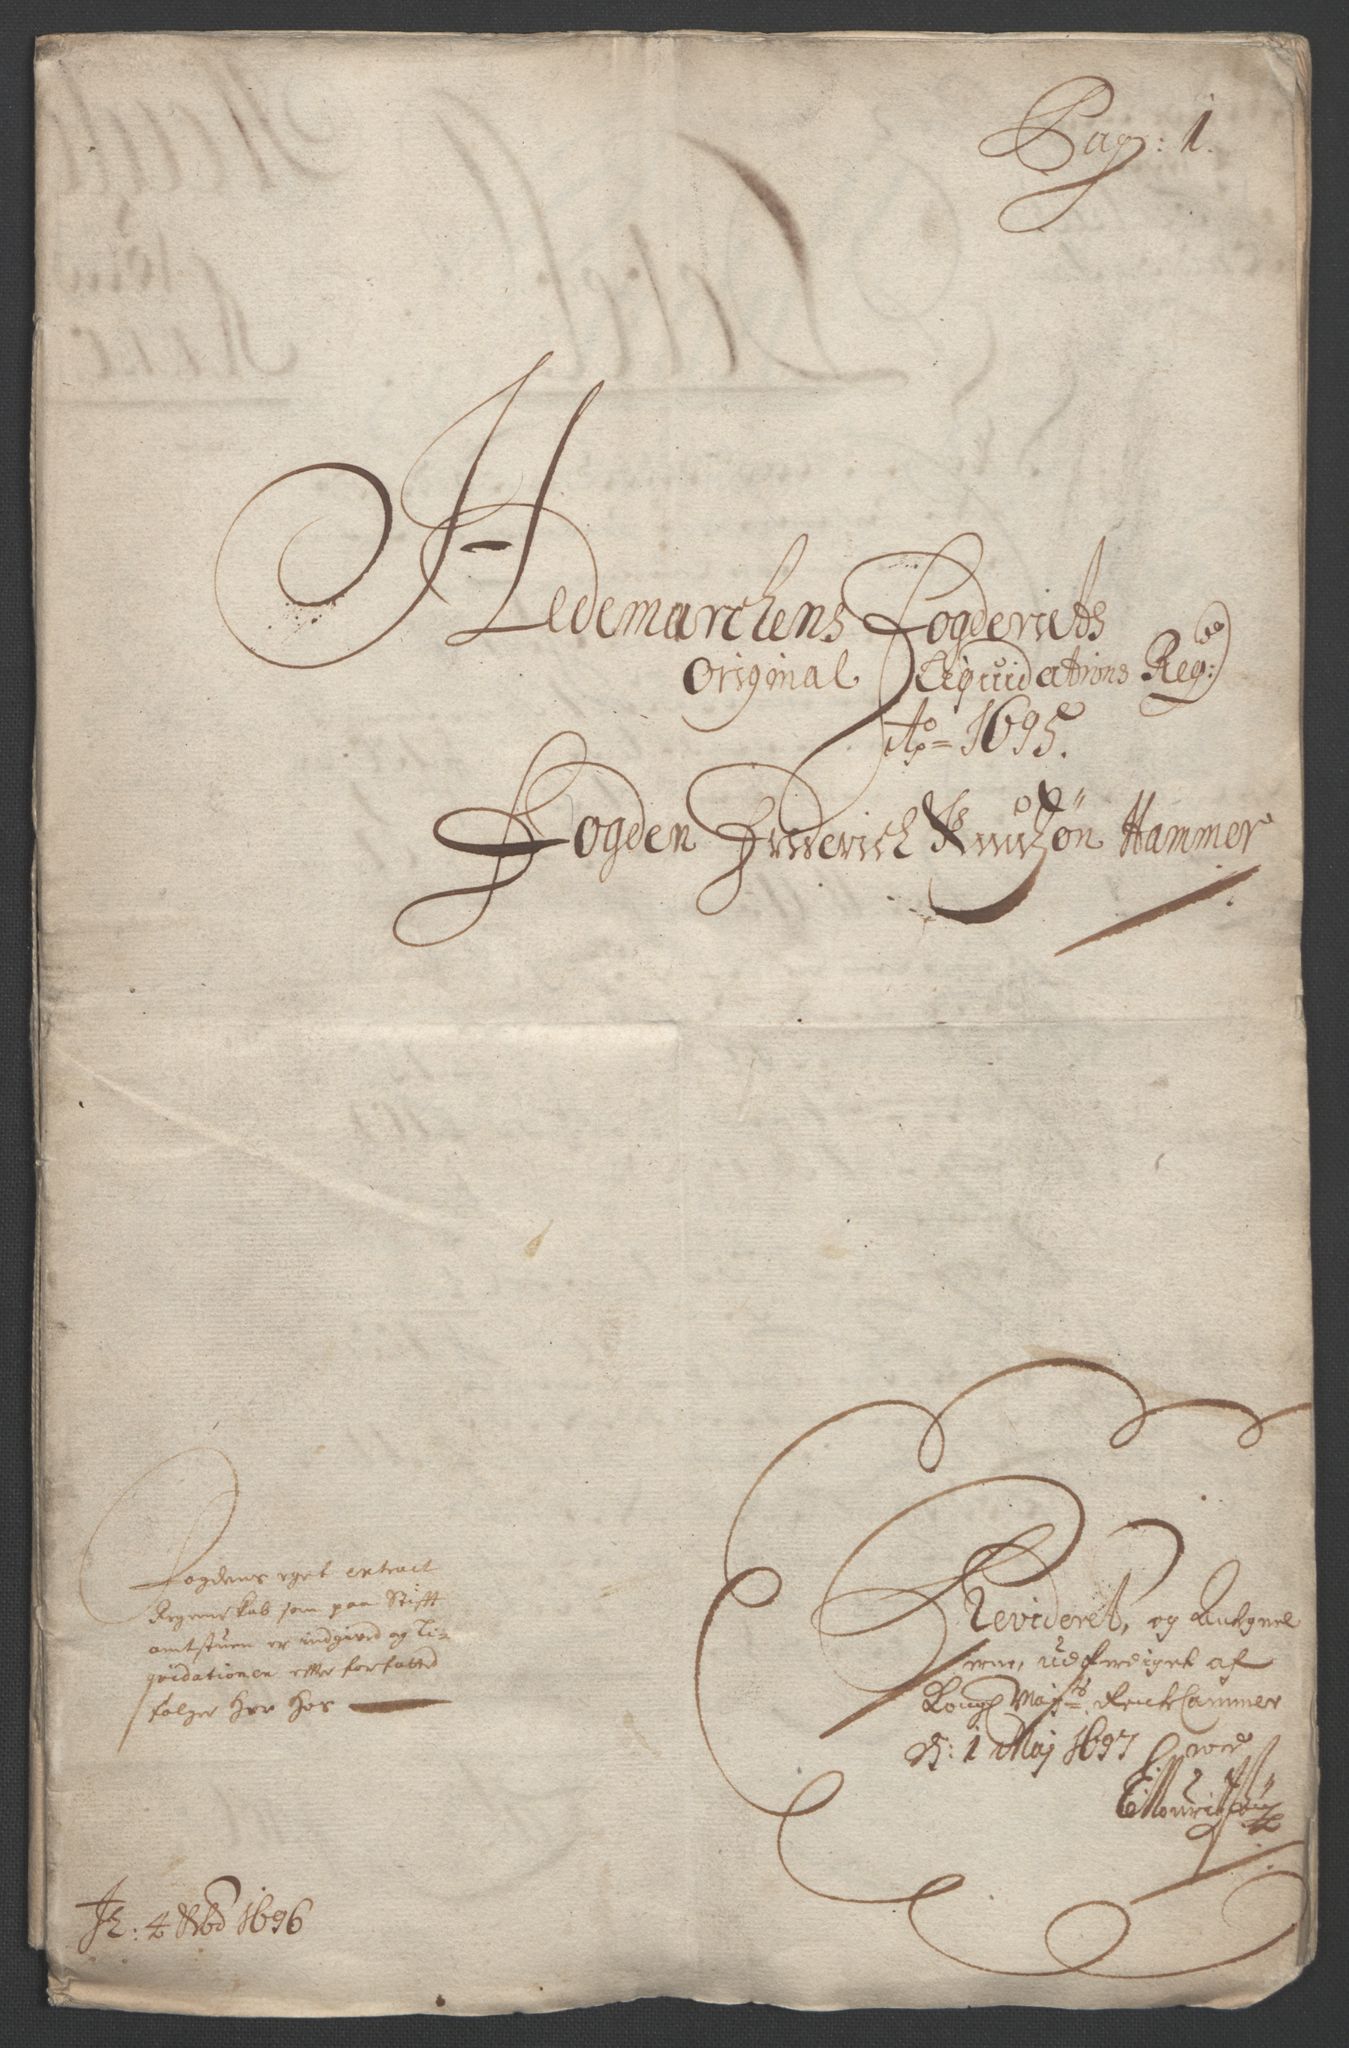 Pag: 1.
Hedemarchens Fogderiets
Original Liqvidations Reg:
Ao 1695.
Fogden Friderich Knudzøn Hammer
Fogdens eget extract
Regenskab som paa Stifft
amtstuen er indgived og Li-
qvidationen effter forfatted
følger her hos
Revideret, og
udferdiget af
Kongl Maj:ts RenteCammer
d: 1 Maj 1697
4 1696